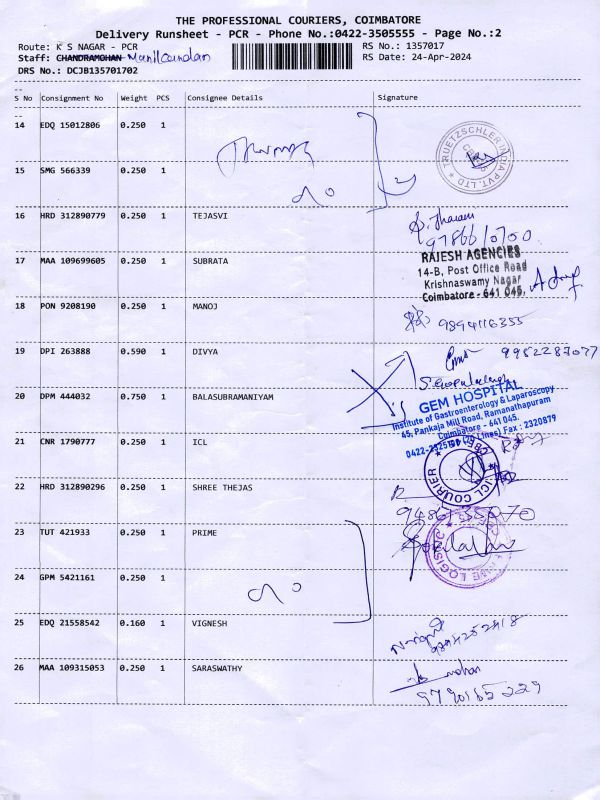 THE PROFESSIONAL COURIERS, COIMBATORE
Delivery Runsheet - PCR - Phone No.:0422-3505555 - Page No.:2
Route: K S NAGAR - PCR
RS No.: 1357017
Staff: CHANDRAMOHAN
RS Date: 24-Apr-2024
DRS No.: DCJB135701702
S No Consignment No Weight PCS Consignee Details Signature
14 EDQ 15012806 0.250 1
TRUETZSCHLER INDIA PVT. LTD
15 SMG 566339 0.250 1
16 HRD 312890779 0.250 1 TEJASVI
RAJESH AGENCIES
17 MAA 109699605 0.250 1 SUBRATA
14-B, Post Office Road
Krishnaswamy Nagar
Coimbatore - 641 045.
18 PON 9208190 0.250 1 MANOJ
9894116355
19 DPI 263888 0.590 1 DIVYA
20 DPM 444032 0.750 1 BALASUBRAMANIYAM
GEM HOSPITAL
Institute of Gastroenterology & Laparoscopy
45, Pankaja Mill Road, Ramanathapuram
Coimbatore - 641 045.
Fax : 2320879
21 CNR 1790777 0.250 1 ICL
ICL COURIER
22 HRD 312890296 0.250 1 SHREE THEJAS
23 TUT 421933 0.250 1 PRIME
24 GPM 5421161 0.250 1
25 EDQ 21558542 0.160 1 VIGNESH
26 MAA 109315053 0.250 1 SARASWATHY
mohan
9790165229